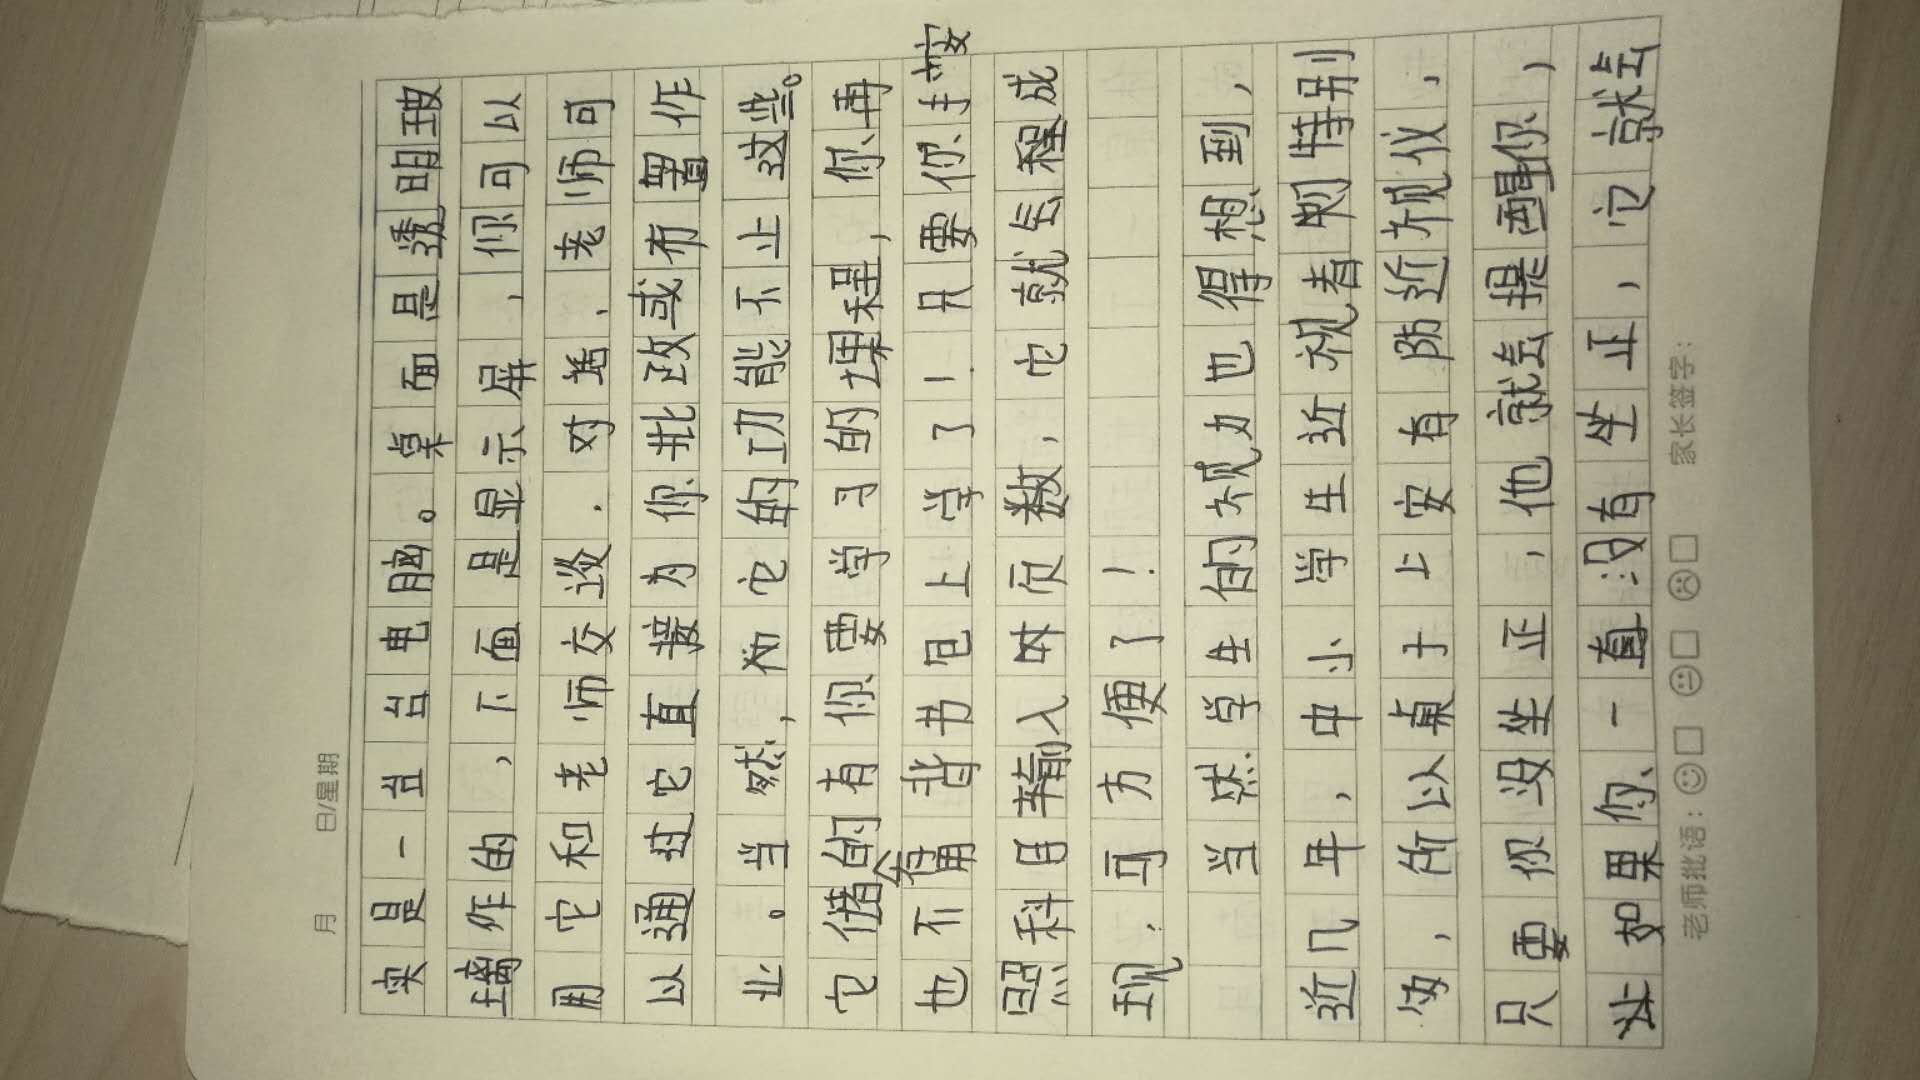 月 日/星期
实是一台台电脑。桌面是透明玻
璃作的，下面是显示屏，你可以
用它和老师交谈．对话．老师可
以通过它直接为你批改或布置作
业。当然，而它的功能不止这些。
它储存的有你要学习的课程，你再
也不用背书包上学了！只要你手按
照科目输入页数，它就会程成
现．可方便了！
当然学生的视力也得想到，
近几年，中小学生近视者特别
多，所以桌子上安有防近视仪，
只要你没坐正，他就会提醒你，
如果你一直没有坐正，它就会
老师批语： 家长签字：